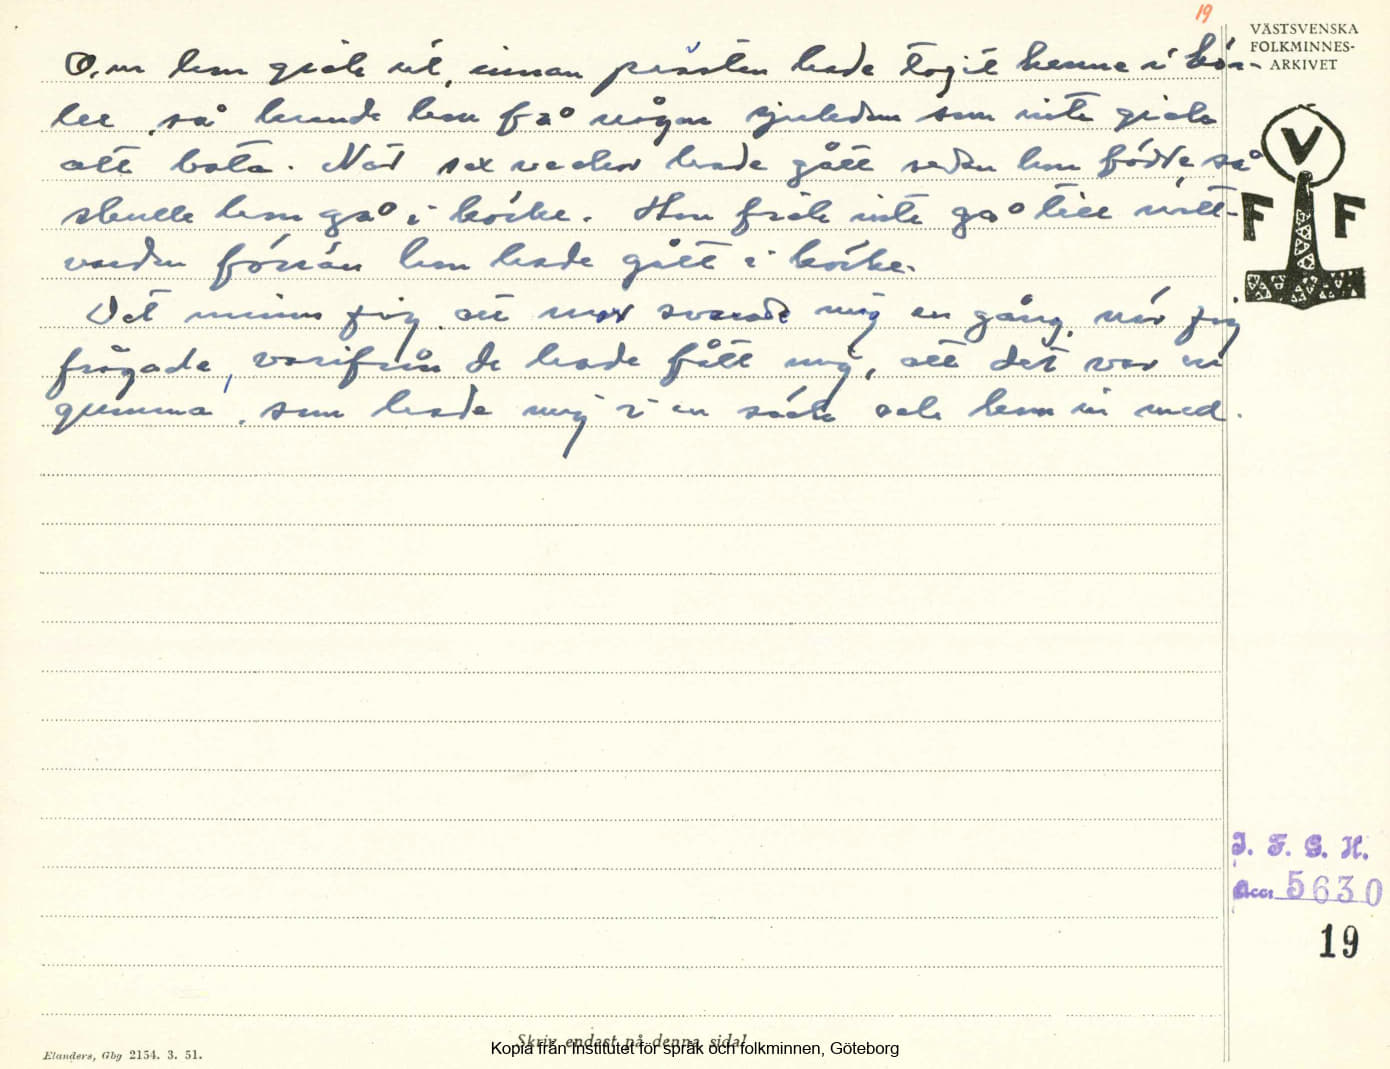 19
VÄSTSVENSKA
FOLKMINNES-
ARKIVET
Om hon gick ut, innan prästen hade tagit henne i kör-
ka, så kunde hon få någon sjukdom som inte gick
att bota. När sex veckor hade gått sedan hon födde, så
skulle hon gå i körka. Hon fick inte gå till natt-
varden förrän hon hade gått i körka.
Det minns jag att mor svarade mig en gång, när jag
frågade, varifrån de hade fått mig, att det var en
gumma, som hade mig i en säck och kom in med.
V
F F
I. F. G. H.
Acc. 5630
19
Skriv endast på denna sida!
Kopia från Institutet för språk och folkminnen, Göteborg
Elanders, Gbg 2154. 3. 51.